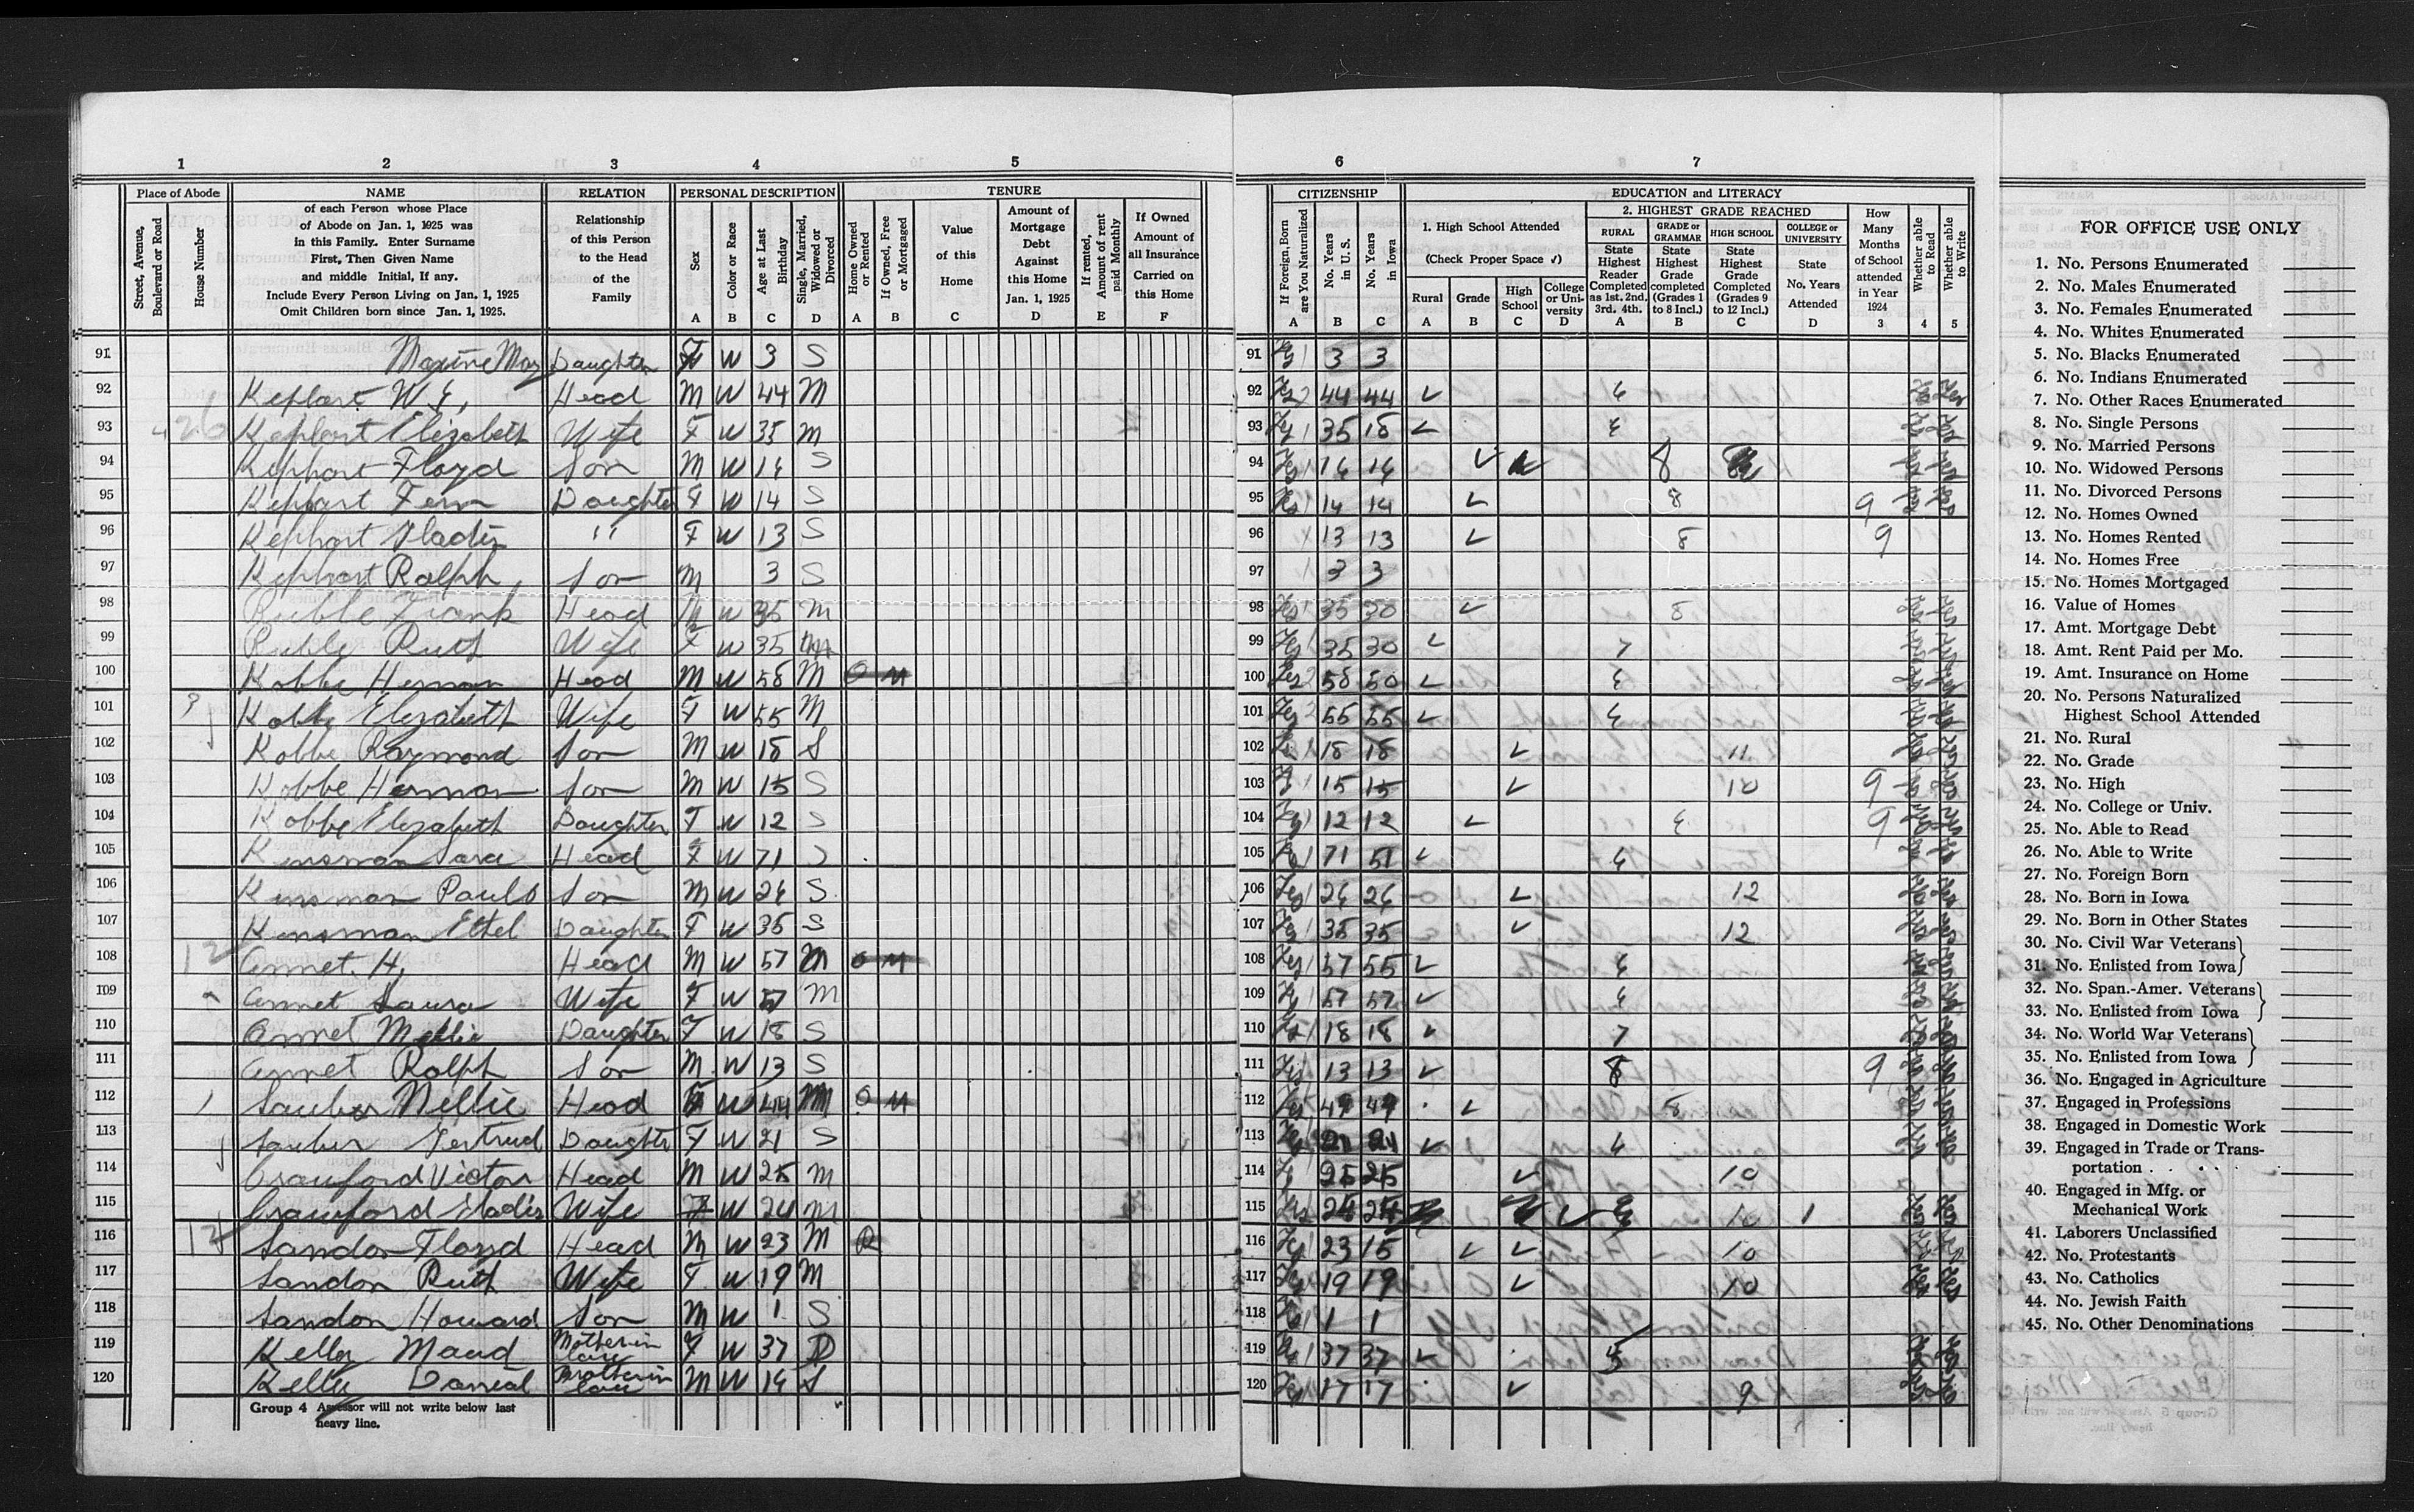 1 2 3 4 5 6 7
Place of Abode NAME RELATION PERSONAL DESCRIPTION TENURE CITIZENSHIP EDUCATION and LITERACY
Street, Avenue, Boulevard or Road
House Number
of each Person whose Place
of Abode on Jan. 1, 1925 was
in this Family. Enter Surname
First, Then Given Name
and middle Initial, If any.
Include Every Person Living on Jan. 1, 1925
Omit Children born since Jan. 1, 1925.
Relationship
of this Person
to the Head
of the
Family
Sex A
Color or Race B
Age at Last Birthday C
Single, Married, Widowed or Divorced D
Home Owned or Rented A
If Owned, Free or Mortgaged B
Value of this Home C
Amount of Mortgage Debt Against this Home Jan. 1, 1925 D
If rented, Amount of rent paid Monthly E
If Owned Amount of all Insurance Carried on this Home F
If Foreign Born are You Naturalized A
No. Years in U. S. B
No. Years in Iowa C
1. High School Attended
(Check Proper Space ✓)
Rural A
Grade B
High School C
College or University D
2. HIGHEST GRADE REACHED
RURAL State Highest Reader Completed as 1st. 2nd. 3rd. 4th. A
GRADE or GRAMMAR State Highest Grade completed (Grades 1 to 8 Incl.) B
HIGH SCHOOL State Highest Grade Completed (Grades 9 to 12 Incl.) C
COLLEGE or UNIVERSITY State No. Years Attended D
How Many Months of School attended in Year 1924 3
Whether able to Read 4
Whether able to Write 5
91 Maxine May Daughter F W 3 S 91 3 3
92 Kephart W.E. Head M W 44 M 92 44 44 ✓
93 Kephart Elizabeth Wife F W 35 M 93 35 18 ✓
94 Kephart Floyd Son M W S 94 ✓ 8
95 Kephart Fern Daughter F W 14 S 95 14 14 ✓ 8 9
96 Kephart " F W 13 S 96 13 13 ✓ 8 9
97 Kephart Ralph Son M 3 S 97 3 3
98 Ruble Frank Head M W 35 M 98 35 30 ✓ 8
99 Ruble Ruth Wife F W 35 M 99 35 30 ✓ 7
100 Kobbe Herman Head M W 58 M O M 100 58 50 ✓
101 Kobbe Elizabeth Wife F W 55 M 101 55 55 ✓
102 Kobbe Raymond Son M W 18 S 102 18 18 ✓ 11
103 Kobbe Herman Son M W 15 S 103 15 15 ✓ 10 9
104 Kobbe Elizabeth Daughter F W 12 S 104 12 12 ✓ 9
105 Kinsman Sara Head F W 71 105 71 51 ✓
106 Kinsman Paul Son M W S 106 ✓ 12
107 Kinsman Ethel Daughter F W 35 S 107 35 35 ✓ 12
108 Annet H. Head M W 57 M O M 108 57 55 ✓
109 Annet Laura Wife F W 57 M 109 57 57 ✓
110 Annet Daughter F W 18 S 110 18 18 ✓ 7
111 Annet Ralph Son M W 13 S 111 13 13 ✓ 8 9
112 Sauber Nellie Head F W M O M 112 ✓ 8
113 Sauber Gertrud Daughter F W 21 S 113 21 ✓ 4
114 Crawford Victor Head M W 25 M 114 25 25 ✓ 10
115 Crawford Wife F W 24 M 115 24 24 ✓ 10 1
116 Landon Floyd Head M W 23 M R 116 23 15 ✓ ✓ 10
117 Landon Ruth Wife F W 19 M 117 19 19 ✓ 10
118 Landon Howard Son M W 1 S 118 1 1
119 Kelley Maud Mother in law F W 37 D 119 37 37 ✓ 5
120 Kelley Brother in law M W S 120 17 17 ✓ 9
Group 4 Assessor will not write below last
heavy line.
FOR OFFICE USE ONLY
1. No. Persons Enumerated
2. No. Males Enumerated
3. No. Females Enumerated
4. No. Whites Enumerated
5. No. Blacks Enumerated
6. No. Indians Enumerated
7. No. Other Races Enumerated
8. No. Single Persons
9. No. Married Persons
10. No. Widowed Persons
11. No. Divorced Persons
12. No. Homes Owned
13. No. Homes Rented
14. No. Homes Free
15. No. Homes Mortgaged
16. Value of Homes
17. Amt. Mortgage Debt
18. Amt. Rent Paid per Mo.
19. Amt. Insurance on Home
20. No. Persons Naturalized
Highest School Attended
21. No. Rural
22. No. Grade
23. No. High
24. No. College or Univ.
25. No. Able to Read
26. No. Able to Write
27. No. Foreign Born
28. No. Born in Iowa
29. No. Born in Other States
30. No. Civil War Veterans
31. No. Enlisted from Iowa
32. No. Span.-Amer. Veterans
33. No. Enlisted from Iowa
34. No. World War Veterans
35. No. Enlisted from Iowa
36. No. Engaged in Agriculture
37. Engaged in Professions
38. Engaged in Domestic Work
39. Engaged in Trade or Trans-
portation
40. Engaged in Mfg. or
Mechanical Work
41. Laborers Unclassified
42. No. Protestants
43. No. Catholics
44. No. Jewish Faith
45. No. Other Denominations